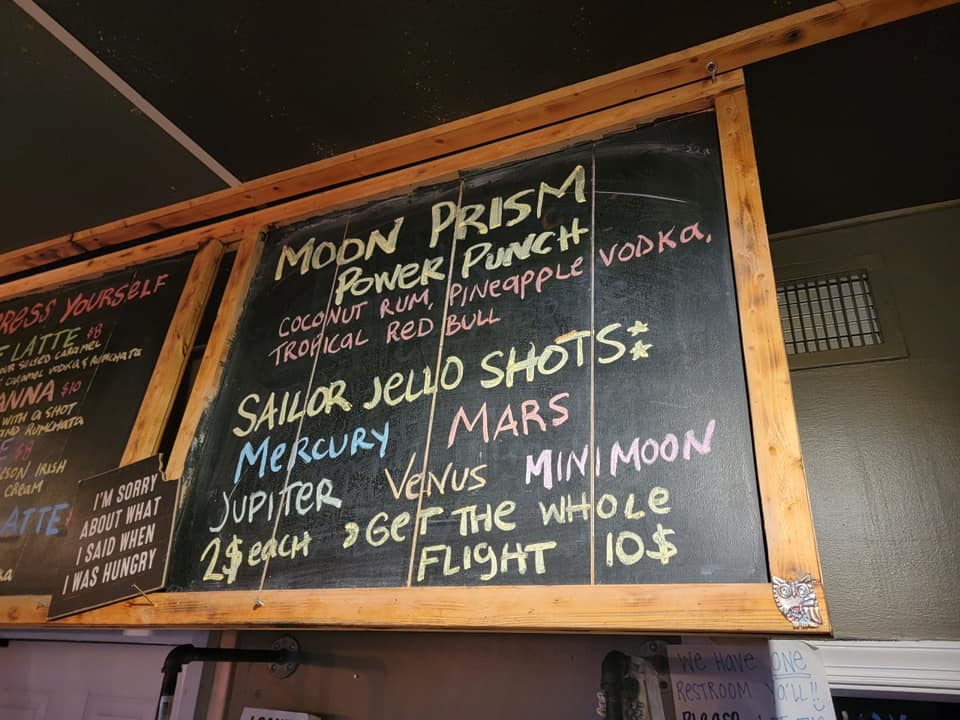 PRESS YOURSELF
LATTE $8
SALTED CARAMEL
CARAMEL VODKA & RUMCHATA
ANNA $10
WITH A SHOT
AND RUMCHATA
$8
IRISH
CREAM
LATTE
I'M SORRY
ABOUT WHAT
I SAID WHEN
I WAS HUNGRY
MOON PRISM
POWER PUNCH
COCONUT RUM, PINEAPPLE VODKA,
TROPICAL RED BULL
SAILOR JELLO SHOTS
MERCURY MARS
JUPITER VENUS MINI MOON
2$ each > GET THE WHOLE
FLIGHT 10$
WE HAVE ONE
RESTROOM YA'LL!!
PLEASE